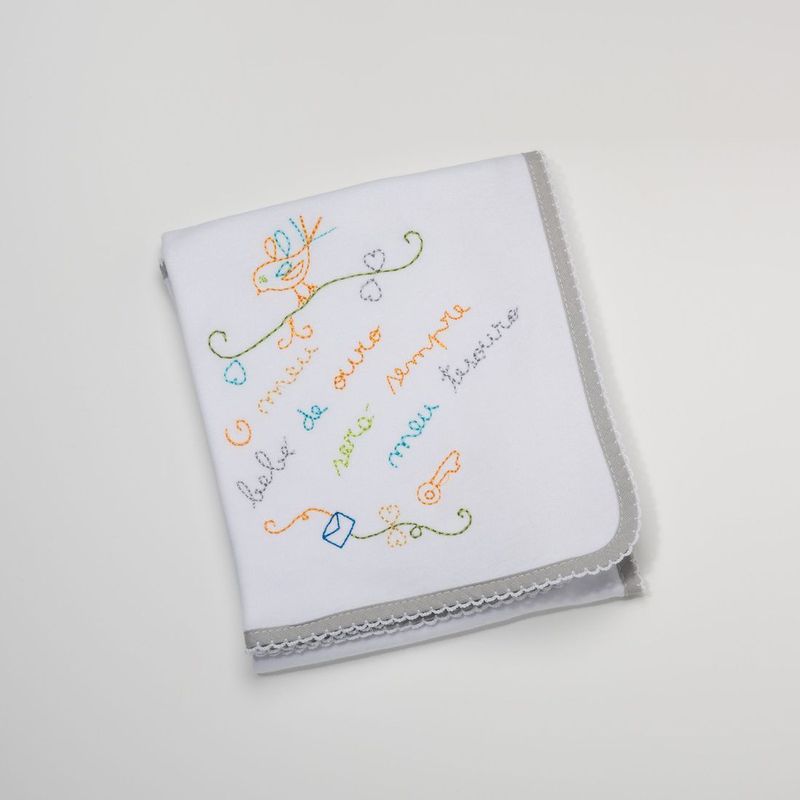 O meu
bebé de ouro
será sempre
meu tesouro